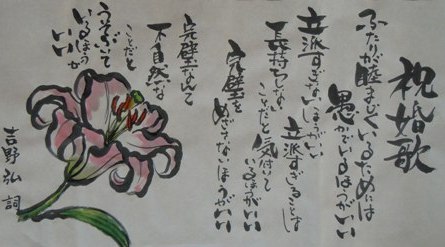 祝婚歌
ふたりが睦まじくいるためには
愚かでいるほうがいい
立派すぎないほうがいい
立派すぎることは
長持ちしない
ことだと気付いて
いるほうがいい
完璧を
めざさないほうがいい
完璧なんて
不自然な
ことだと
うそぶいて
いるほうが
いい
吉野弘 詞